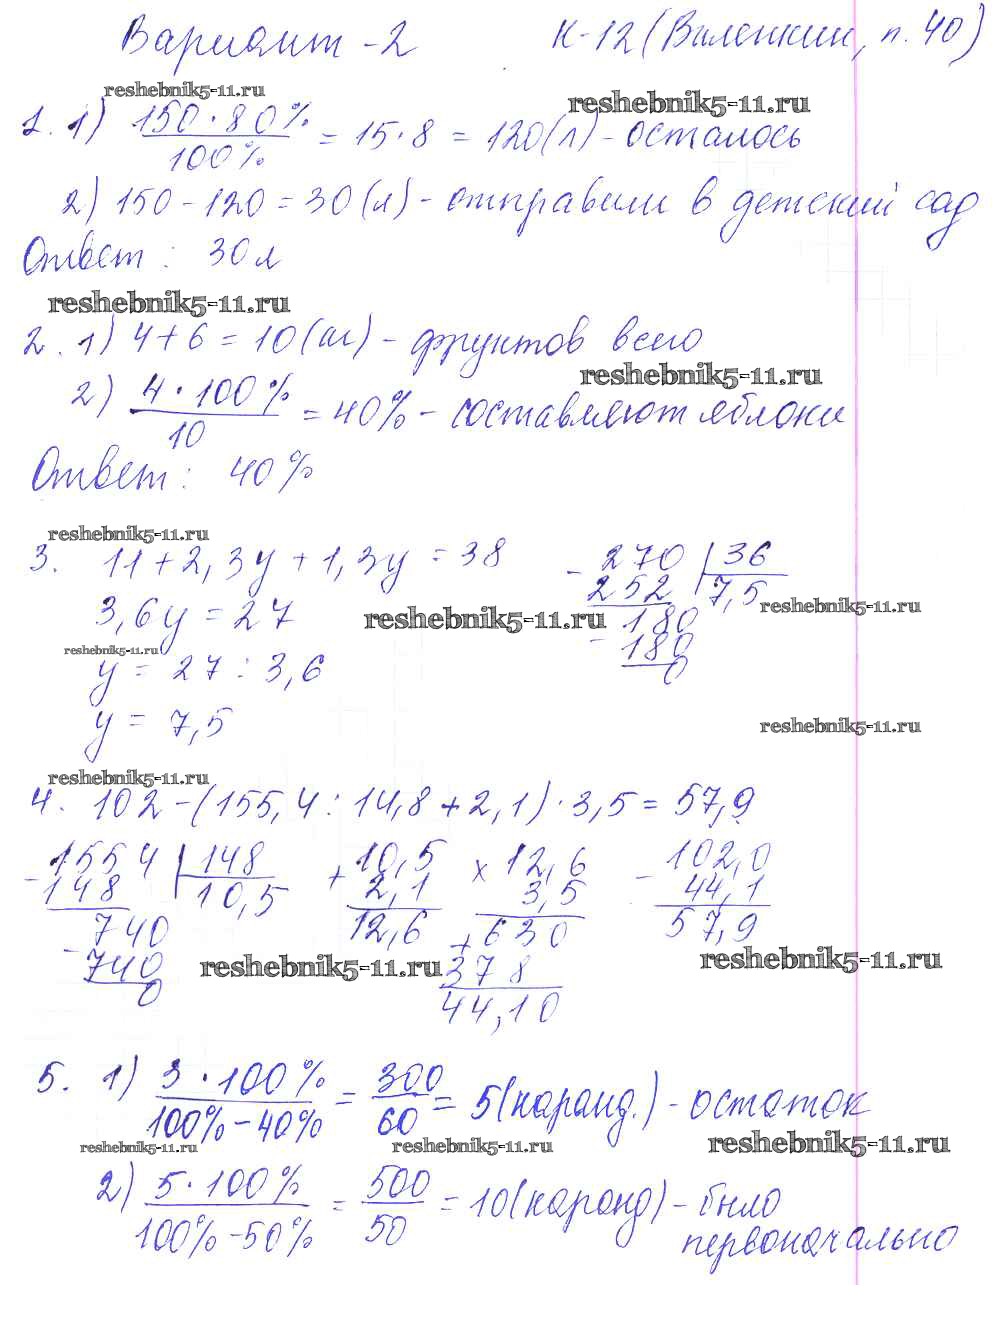 Вариант - 2 К-12 (Виленкин, п. 40)
reshebnik5-11.ru
reshebnik5-11.ru
1. 1) 150 · 80% / 100% = 15 · 8 = 120 (л) - осталось
2) 150 - 120 = 30 (л) - отправили в детский сад
Ответ: 30 л
reshebnik5-11.ru
2. 1) 4 + 6 = 10 (кг) - фруктов всего
reshebnik5-11.ru
2) 4 · 100% / 10 = 40% - составляют яблоки
Ответ: 40%
reshebnik5-11.ru
3. 11 + 2,3y + 1,3y = 38
- 270 | 36
252 7,5
180
- 180
0
3,6y = 27
reshebnik5-11.ru
reshebnik5-11.ru
reshebnik5-11.ru
y = 27 : 3,6
y = 7,5
reshebnik5-11.ru
reshebnik5-11.ru
4. 102 - (155,4 : 14,8 + 2,1) · 3,5 = 57,9
- 1554 | 148
148 10,5
- 740
740
0
+ 10,5
2,1
12,6
x 12,6
3,5
+ 630
378
44,10
- 102,0
44,1
57,9
reshebnik5-11.ru
reshebnik5-11.ru
5. 1) 3 · 100% / 100% - 40% = 300 / 60 = 5 (каранд.) - остаток
reshebnik5-11.ru
reshebnik5-11.ru
reshebnik5-11.ru
2) 5 · 100% / 100% - 50% = 500 / 50 = 10 (каранд) - было
первоначально